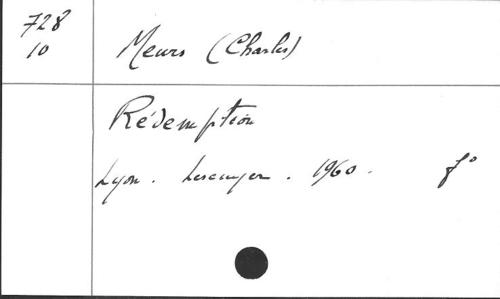 728
10
Meurs (Charles)
Rédemption
Lyon. Lescuyer. 1960. f°